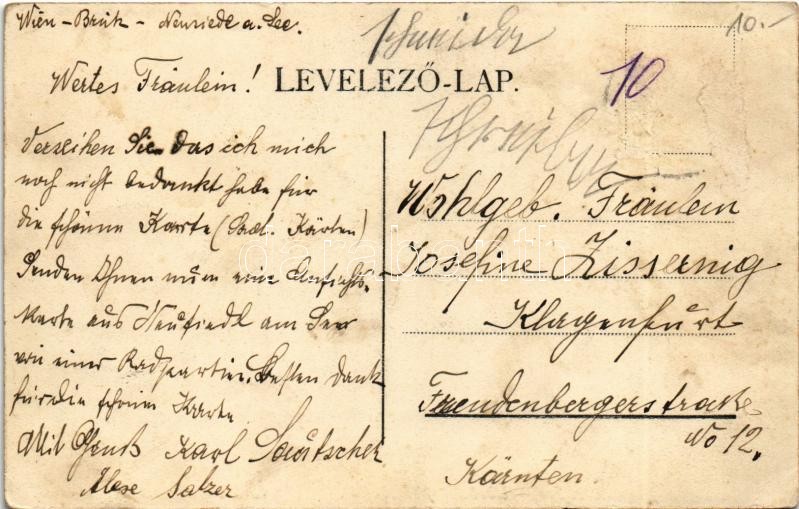 Wien - Bruk - Neusiedl a. See.
Wertes Fräulein!
LEVELEZŐ-LAP.
10
10.-
Verzeihen Sie das ich mich
noch nicht bedankt habe für
die schönne Karte (Bad. Kärten)
Senden Ihnen nun eine Ansichts-
karte aus Neusiedl am See
von einer Radpartie. Besten dank
für die schöne Karte
Mit Gruß Karl
Salzer
Wohlgeb. Fräulein
Josefine Zissernig
Klagenfurt
Freudenbergerstrasse
No 12.
Kärnten.